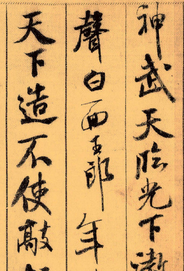 神武天臨光下
聲白面王郎年
天下造不使敲